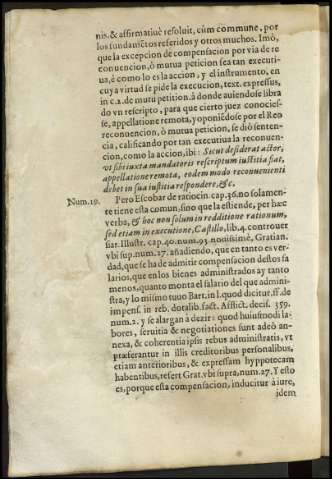 nis. & affirmatiuè resoluit, cùm commune, por
los fundamẽtos referidos y otros muchos. Imò,
que la excepcion de compensacion por via de re
conuencion, ò mutua peticion sea tan executi-
ua, è como lo es la accion, y el instrumento, en
cuya virtud se pide la execucion, text. expressus,
in c.2. de mutu. petition. à donde auiendose libra
do vn rescripto, para que cierto juez conocies-
se, appellatione remota, y oponiẽdose por el Reo
reconuencion, ò mutua peticion, se diò senten-
cia, calificando por tan executiua la reconuen-
cion, como la accion, ibi: Sicut desiderat actor,
vt sibi iuxta mandatoris rescriptum iustitia fiat,
appellatione remota, eodem modo reconuenienti
debet in sua iustitia respondere, &c.
Num. 19. Pero Escobar de ratiocin. cap. 36. no solamen-
te tiene esta comun, sino que la estiende, per hæc
verba, & hoc non solum in redditione rationum,
sed etiam in executione, Castillo, lib. 4. controuer
siar. Illustr. cap. 40. num. 93. nouissimè, Gratian.
vbi sup. num. 27. añadiendo, que en tanto es ver-
dad, que se ha de admitir compensacion destos sa
larios, que en los bienes administrados ay tanto
menos, quanto monta el salario del que adminis-
tra, y lo mismo tuuo Bart. in l. quod dicitur. ff. de
impens. in reb. dotalib. fact. Afflict. decis. 359.
num. 2. y se alargan à dezir: quod huiusmodi la-
bores, seruitia & negotiationes sunt adeò an-
nexa, & coherentia ipsis rebus administratis, vt
præferantur in illis creditoribus personalibus,
etiam anterioribus, & expressam hyppotecam
habentibus, refert Grat. vbi supra, num. 27. Y esto
es, porque esta compensacion, inducitur à iure,
idem